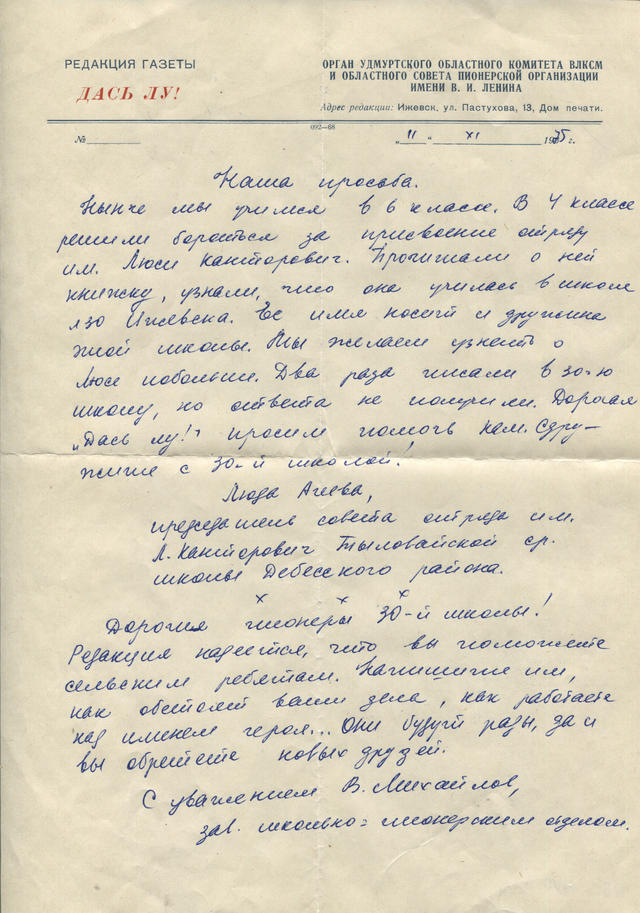 РЕДАКЦИЯ ГАЗЕТЫ
ДАСЬ ЛУ!
ОРГАН УДМУРТСКОГО ОБЛАСТНОГО КОМИТЕТА ВЛКСМ
И ОБЛАСТНОГО СОВЕТА ПИОНЕРСКОЙ ОРГАНИЗАЦИИ
ИМЕНИ В. И. ЛЕНИНА
Адрес редакции: Ижевск, ул. Пастухова, 13, Дом печати.
092—68
№
„ 11 “ XI 1975 г.
Наша просьба.
Нынче мы учимся в 6 классе. В 4 классе
решили бороться за присвоение отряду
им. Люси Канторович. Прочитали о ней
книжку, узнали, что она училась в школе
№30 Ижевска. Ее имя носит и дружина
этой школы. Мы желаем узнать о
Люсе побольше. Два раза писали в 30-ю
школу, но ответа не получили. Дорогая
„Дась лу!" просим помочь нам. Сдру-
жите с 30-й школой!
Люда Агеева,
председатель совета отряда им.
Л. Канторович Тыловайской ср.
школы Дебесского района.
х х х
Дорогие пионеры 30-й школы!
Редакция надеется, что вы поможете
сельским ребятам. Напишите им,
как обстоят ваши дела, как работаете
над именем героя... Они будут рады, да и
вы обретете новых друзей.
С уважением В. Михайлов,
зав. школьно-пионерским отделом.